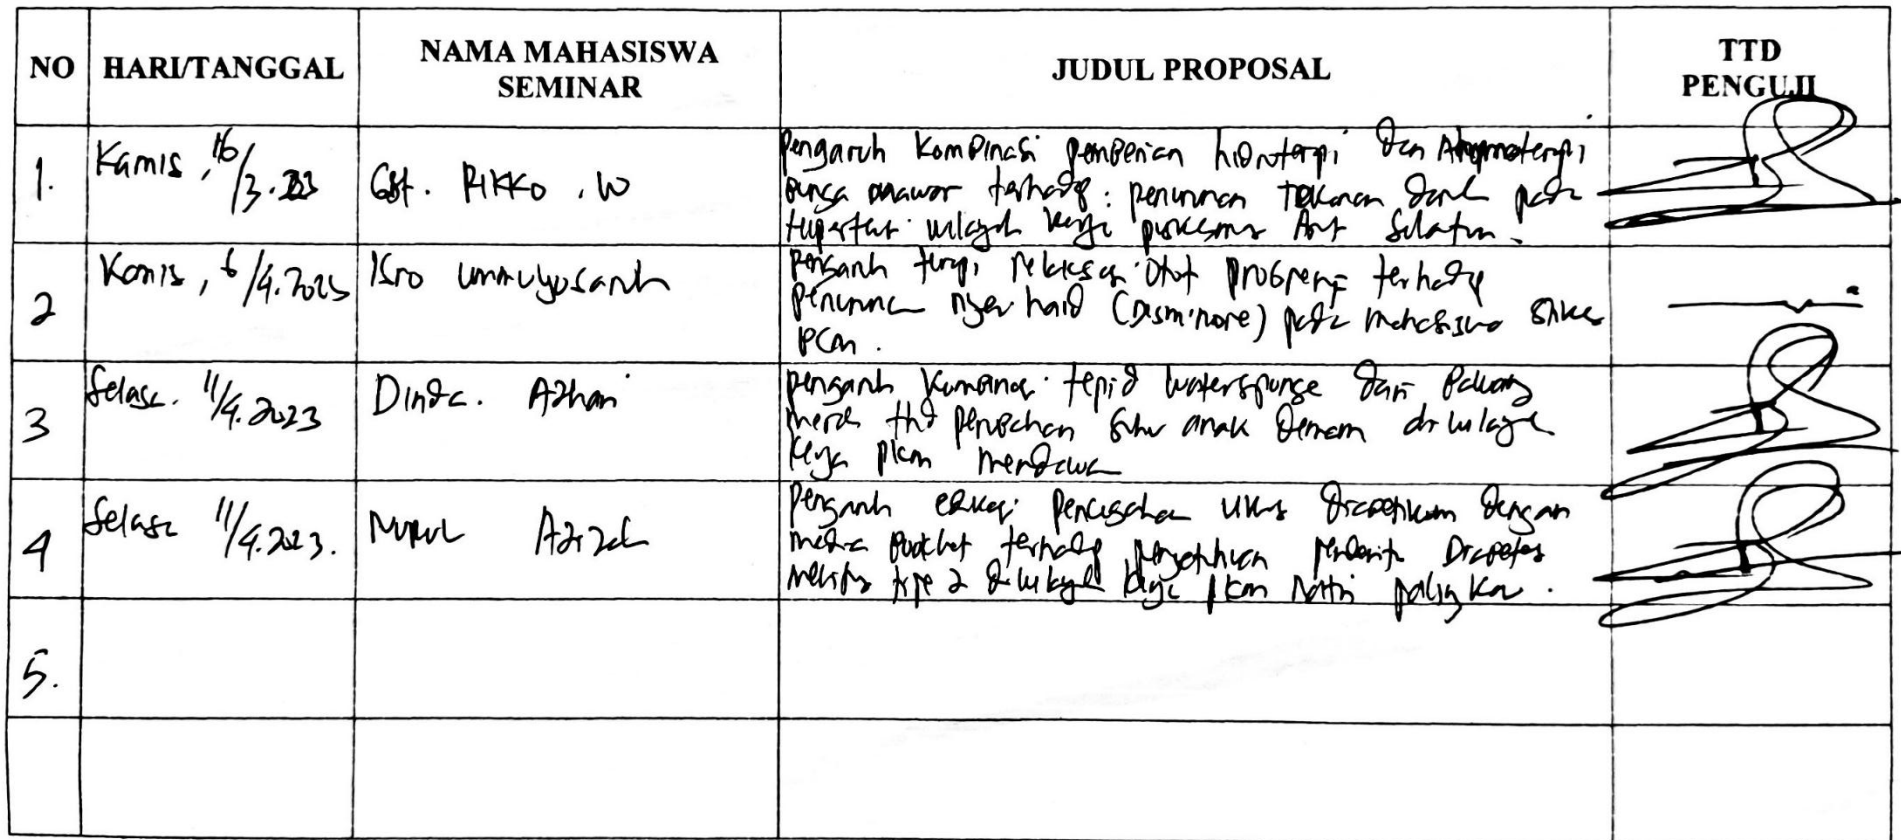 NO HARI/TANGGAL NAMA MAHASISWA SEMINAR JUDUL PROPOSAL TTD PENGUJI
1. Kamis, 16/3.23 Gst. Rikko. W Pengaruh Kombinasi pemberian hidroterapi dan Aromaterapi
bunga mawar terhadap penurunan Tekanan darah pada
hipertensi wilayah kerja puskesmas Arut Selatan.
2 Kamis, 6/4.2023 Isro Ummuyusanh Pengaruh terapi relaksasi Otot progresif terhadap
penurunan nyeri haid (Disminore) pada mahasiswa Stikes
BCM.
3 Selasa. 11/4.2023 Dinda. Azhari pengaruh Kombinasi tepid watersponge dan Bawang
merah thd perubahan suhu anak demam di wilayah
kerja pkm mendawai
4 Selasa 11/4.2023. Nurul Azizah Pengaruh edukasi pencegahan ulkus diabetikum dengan
media booklet terhadap pengetahuan penderita Diabetes
melitus tipe 2 di wilayah kerja pkm
5.